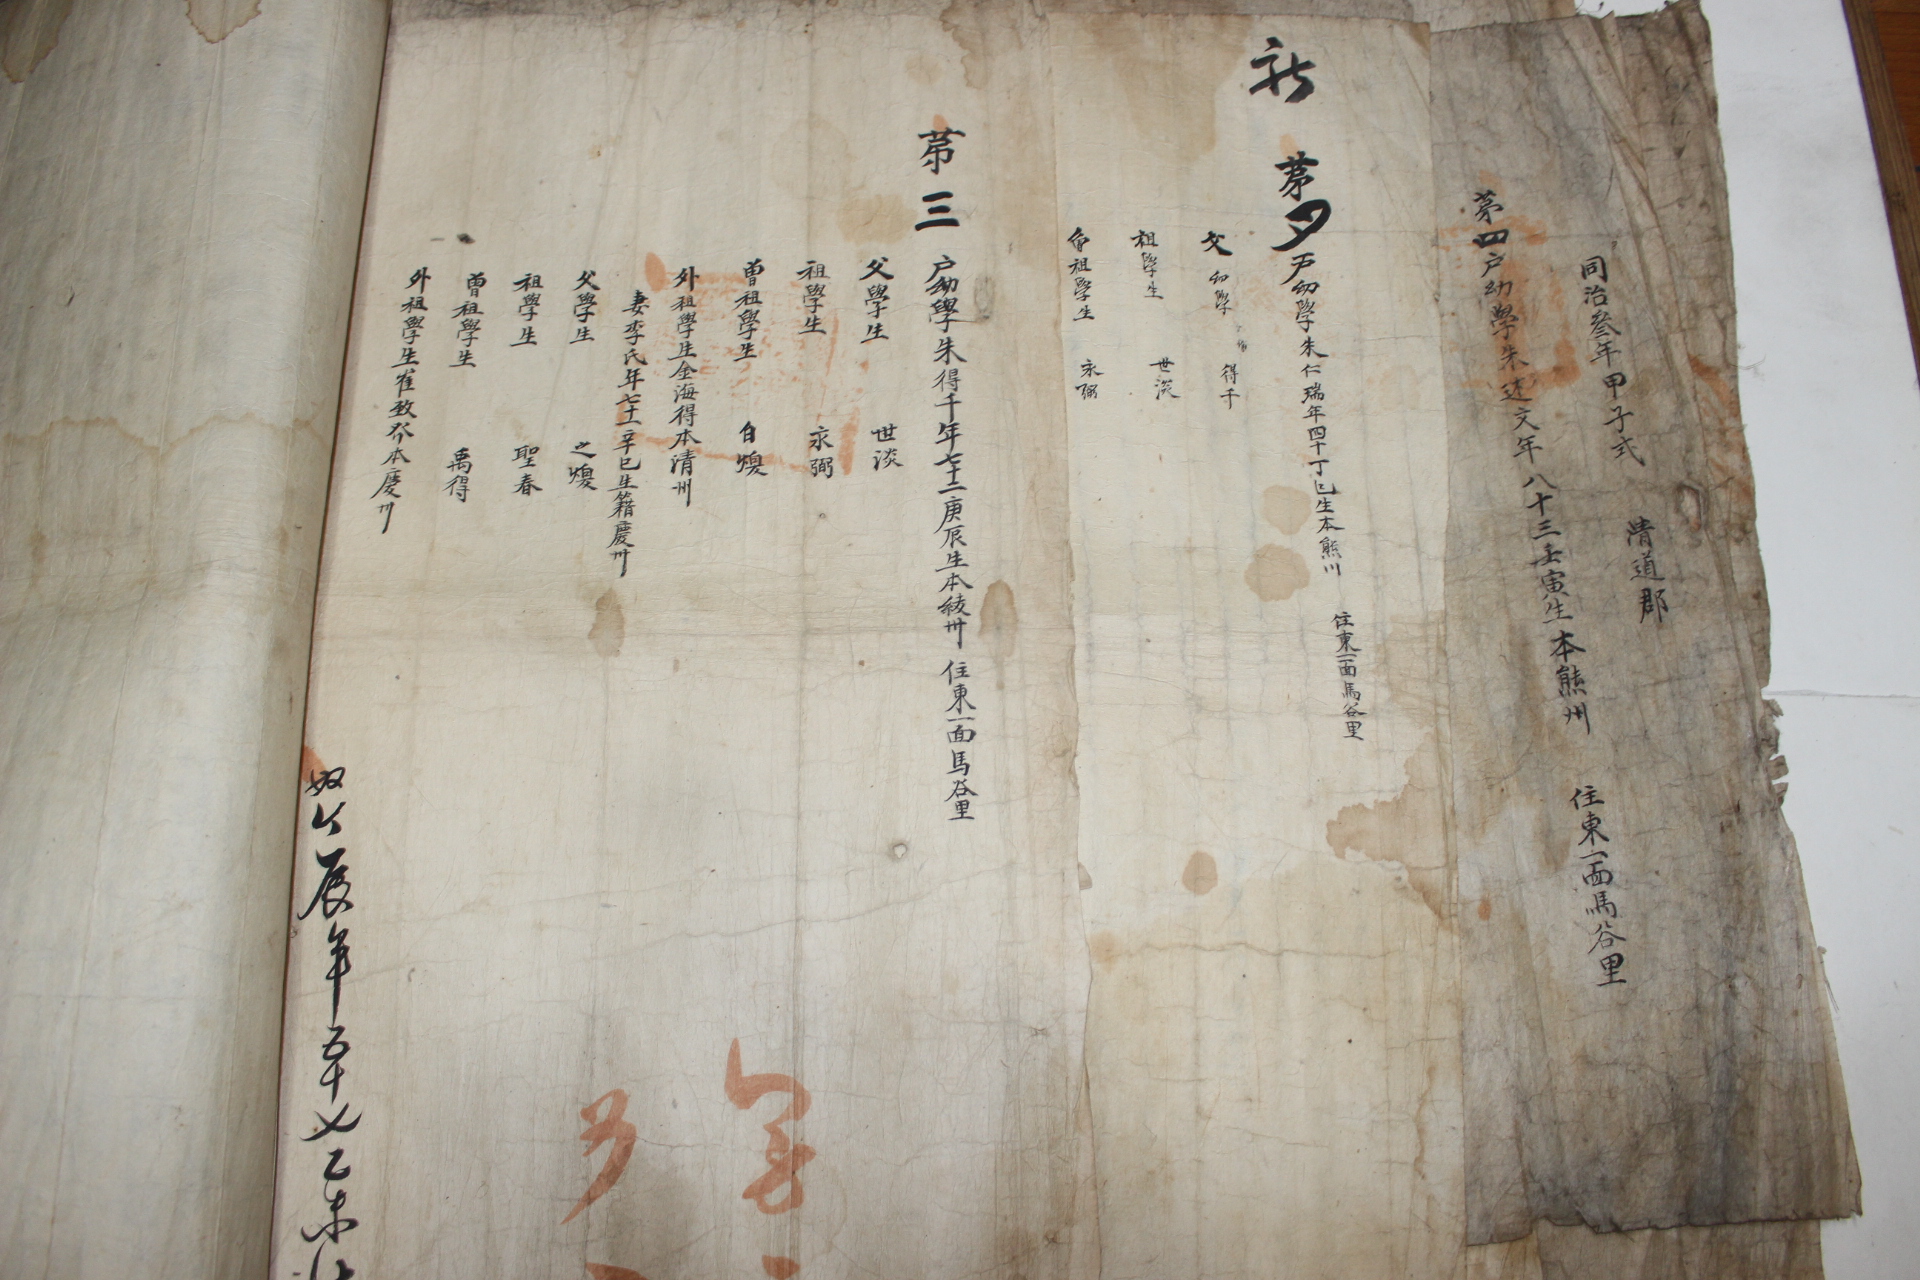 同治叁年甲子式 淸道郡
第四戶幼學朱述文年八十三壬寅生本熊州 住東一面馬谷里
新
第 戶幼學朱仁瑞年四十丁巳生本熊川 住東一面馬谷里
父幼學 得千
祖學生 世淡
曾祖學生 永弼
第三 戶幼學朱得千年七十二庚辰生本綾州 住東一面馬谷里
父學生 世淡
祖學生 永弼
曾祖學生 自煥
外祖學生金海得本淸州
妻李氏年七十一辛巳生籍慶州
父學生 之煥
祖學生 聖春
曾祖學生 禹得
外祖學生崔致 本慶州
奴 辰年五十 乙未